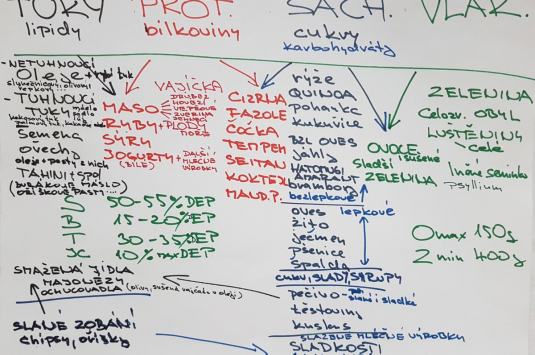 TUKY PROT. SACH. VLÁK.
lipidy bílkoviny cukry
karbohydráty
- NETUHNOUCÍ
Oleje
- TUHNOUCÍ
TUKY
Semena
ořechy
oleje + pasty z nich
TAHINI + SPOL
(BURÁKOVÉ MÁSLO)
OŘÍŠKOVÉ PASTY...
VAJÍČKA
MASO
DRŮBEŽ
HOVĚZÍ
VEPŘOVÉ
ZVĚŘINA
RYBY + PLODY MOŘE
SÝRY
JOGURTY + DALŠÍ MLÉČNÉ VÝROBKY
(BÍLÉ)
CIZRNA
FAZOLE
ČOČKA
TEMPEH
SEITAN
KOKTEJL
rýže
QUINOA
pohanka
kukuřice
BZL OVES
jáhly
AMARANT
brambory
bezlepkové
oves lepkové
žito
ječmen
pšenice
špalda
cukr, SLADY, SYRUPY
pečivo - slané i sladké
těstoviny
kuskus
SLAZENÉ MLÉČNÉ VÝROBKY
SLADKOSTI
OVOCE
Sladší sušené
ZELENINA
ZELENINA
Celozr. OBIL
LUŠTĚNINY
celé
lněné semínko
psyllium
S 50-55% DEP
B 15-20% DEP
T 30-35% DEP
JC 10% max DEP
O max 150g
Z min 400g
SMAŽENÁ JÍDLA
MAJONÉZY
OCHUCOVADLA (olivy, sušená rajčata v oleji)
SLANÉ ZOBÁNÍ
chipsy, oříšky